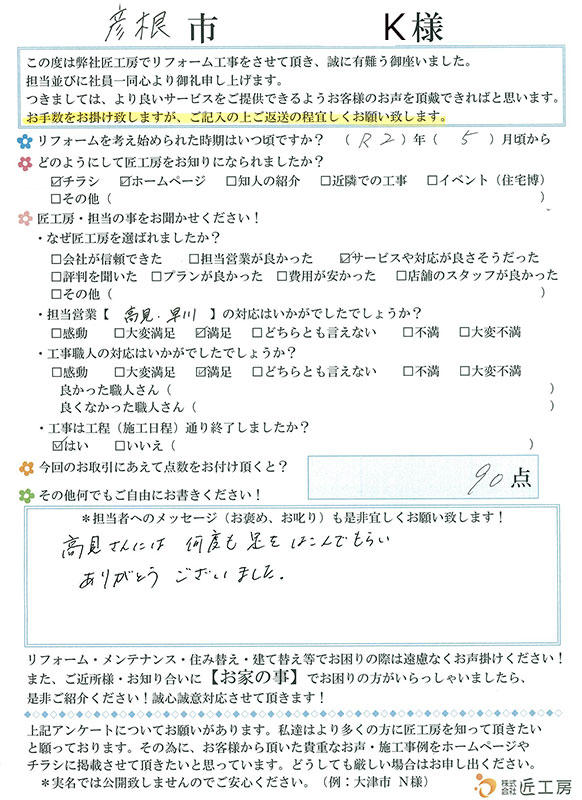 彦根市 K様
この度は弊社匠工房でリフォーム工事をさせて頂き、誠に有難う御座いました。
担当並びに社員一同心より御礼申し上げます。
つきましては、より良いサービスをご提供できるようお客様のお声を頂戴できればと思います。
お手数をお掛け致しますが、ご記入の上ご返送の程宜しくお願い致します。
リフォームを考え始められた時期はいつ頃ですか？ （ R2 ）年（ 5 ）月頃から
どのようにして匠工房をお知りになられましたか？
☑チラシ ☑ホームページ □知人の紹介 □近隣での工事 □イベント（住宅博）
□その他（ ）
匠工房・担当の事をお聞かせください！
・なぜ匠工房を選ばれましたか？
□会社が信頼できた □担当営業が良かった ☑サービスや対応が良さそうだった
□評判を聞いた □プランが良かった □費用が安かった □店舗のスタッフが良かった
□その他（ ）
・担当営業【 高見・早川 】の対応はいかがでしたでしょうか？
□感動 □大変満足 ☑満足 □どちらとも言えない □不満 □大変不満
・工事職人の対応はいかがでしたでしょうか？
□感動 □大変満足 ☑満足 □どちらとも言えない □不満 □大変不満
良かった職人さん（ ）
良くなかった職人さん（ ）
・工事は工程（施工日程）通り終了しましたか？
☑はい □いいえ（ ）
今回のお取引にあえて点数をお付け頂くと？ 90点
その他何でもご自由にお書きください！
＊担当者へのメッセージ（お褒め、お叱り）も是非宜しくお願い致します！
高見さんには 何度も足をはこんでもらい
ありがとうございました.
リフォーム・メンテナンス・住み替え・建て替え等でお困りの際は遠慮なくお声掛けください！
また、ご近所様・お知り合いに【お家の事】でお困りの方がいらっしゃいましたら、
是非ご紹介ください！誠心誠意対応させて頂きます！
上記アンケートについてお願いがあります。私達はより多くの方に匠工房を知って頂きたい
と願っております。その為に、お客様から頂いた貴重なお声・施工事例をホームページや
チラシに掲載させて頂きたいと思っています。どうしても厳しい場合はお申し出ください。
＊実名では公開致しませんのでご安心ください。（例：大津市 N様）
株式会社 匠工房